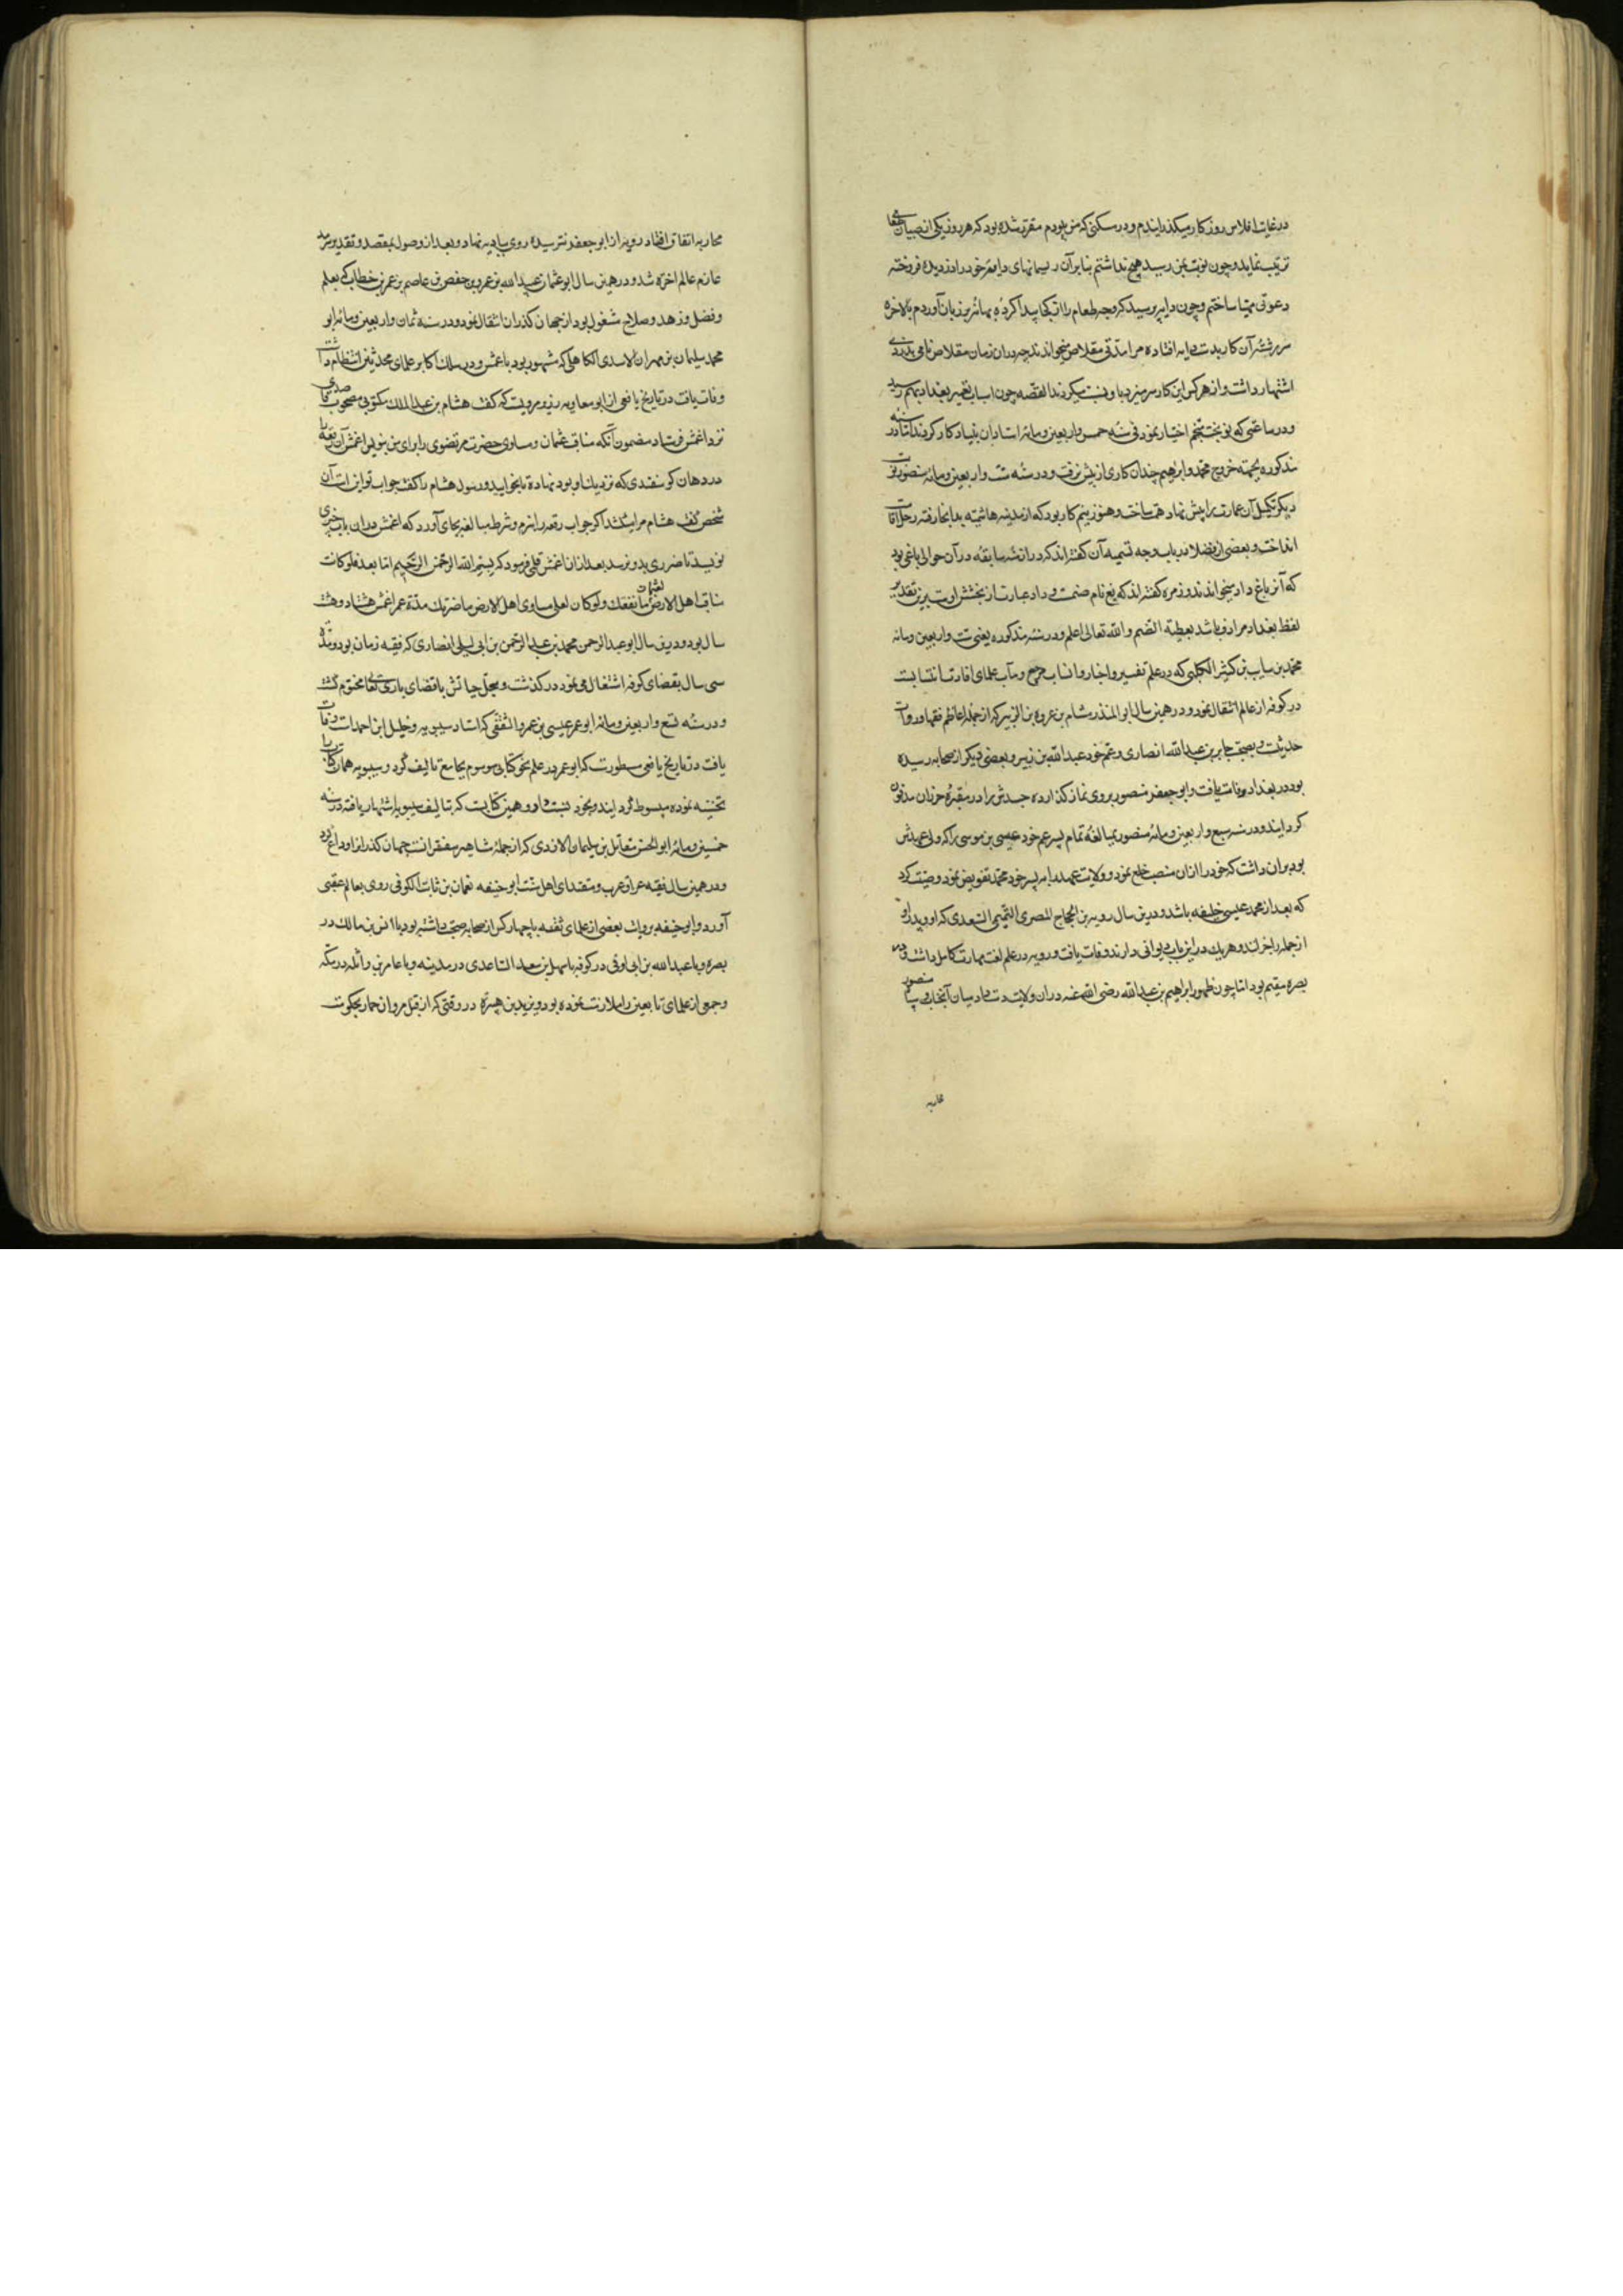 در غایت افلاس روزکار میکذرانیدم و در سکنی که من بودم مقرر شده بود که هر روز یکی از صبیان طعامی
ترتیب نماید و چون نوبت بمن رسید هیچ نداشتم بنابر آن ریسمانهای دایهٔ خود را دزدیده فروخته
دعوتی مهیا ساختم و چون دایه پرسید که وجه طعام را از کجا پیدا کردهٔ بهانه بر زبان آوردم بالاخره
سر رشته آن کار بدست دایه افتاده مرا مدتی مقلاص میخواندند چه در ان زمان مقلاص نامی بدزدی
اشتهار داشت و از هر کس این کار سر میزد باو نسبت میکردند القصه چون اسباب تعمیر بغداد بهم رسید
و در ساعتی که نوبخت منجم اختیار نمود فی سنه خمس و اربعین و مائه استادان بنیاد کار کردند اما در سنه
مذکوره بجهته خروج محمد و ابراهیم چندان کاری از پیش نرفت و در سنه ست و اربعین و مائه منصور نوبت
دیکر تکمیل آن عمارت را پیش نهاد همت ساخت و هنوز نیم کار بود که از مدینه هاشمیه بدانجا رفته رحل اقامت
انداخت و بعضی از فضلا در باب وجه تسمیه آن کفته اند که در ازمنه سابقه در آن حوالی باغی بود
که آنرا باغ داد میخواندند و زمره کفته اند که بغ نام صنمست و داد عبارت از بخشش است برین تقدیر
لفظ بغداد مرادف باشد بعطیة الصنم والله تعالی اعلم و در سنه مذکوره یعنی ست و اربعین و مائه
محمد بن سایب بن کثیر الکلبی که در علم تفسیر و اخبار و انساب مرجع و مآب علمای افادت انتساب است
در کوفه از عالم انتقال نمود و در همین سال ابو المنذر هشام بن عروة بن الزبیر که از جمله اعاظم فقها و روات
حدیثست و بصحبت جابر بن عبدالله انصاری و عم خود عبدالله بن زبیر و بعضی دیکر از صحابه رسیده
بود در بغداد وفات یافت و ابو جعفر منصور بروی نماز کذارده جسدش را در مقبرهٔ خزران مدفون
کردانید و در سنه سبع و اربعین و مائه منصور بمبالغه تمام پسر عم خود عیسی بن موسی را که ولی عهدش
بود بران داشت که خود را از ان منصب خلع نمود و ولایت عهد را به پسر خود محمد تفویض نمود و وصیت کرد
که بعد از محمد عیسی خلیفه باشد و درین سال رویه بن العجاج المصری التمیمی السعدی که او و پدر او
از جمله راجزانند و هر یک در این باب دیوانی دارند وفات یافت و رویه در علم لغت مهارت کامل داشت و در
بصره مقیم بود اما چون ظهور ابراهیم بن عبدالله رضی الله عنه در ان ولایت دست داد میان آنجناب و سپاه منصور
محاربه
محاربه اتفاق افتاد رویه از ابو جعفر ترسیده روی ببادیه نهاد و بعد از وصول بمقصد و تقدیر
عازم عالم اخره شد و در همین سال ابو عثمان عبیدالله بن عمرو بن حفص بن عاصم بن عمر بن خطاب که بعلم
و فضل و زهد و صلاح مشغول بود از جهان کذران انتقال نمود و در سنه ثمان و اربعین و مائه ابو
محمد سلیمان بن مهران الاسدی الکاهلی که مشهور بود باعمش و در سلک اکابر علمای محدثین انتظام داشت
وفات یافت در تاریخ یافعی از ابو معاویه رزیر مرویست که کفت هشام بن عبدالملک مکتوبی مصحوب قاصدی
نزد اعمش فرستاد مضمون آنکه مناقب عثمان و مساوی حضرت مرتضوی را برای من بنویس اعمش آن رقعه را
در دهان کوسفندی که نزدیک او بود نهاده تا بخوایید و رسول هشام را کفت جواب تو این است آن
شخص کفت هشام مرا میکشد اکر جواب رقعه را نبرم و شرط مبالغه بجای آورد که اعمش در ان باب چیزی
نویسد تا ضرری بدو نرسد بعد از ان اعمش قلمی فرمود که بسم الله الرحمن الرحیم اما بعد فلو کانت
لعثمان مناقب اهل الارض ما نفعتك ولو کان لعلی مساوی اهل الارض ما ضرتك مدة عمر اعمش هشتاد و هشت
سال بود و درین سال ابو عبدالرحمن محمد بن عبدالرحمن بن ابی لیلی انصاری که فقیه زمان بود و مدت
سی سال بقضای کوفه اشتغال می نمود در کذشت و سجل حیاتش باقضای باری تعالی مختوم کشت
و در سنه تسع و اربعین و مائه ابو عمر عیسی بن عمرو الثقفی که استاد سیبویه و خلیل ابن احمد است وفات
یافت در تاریخ یافعی مسطورست که ابو عمر در علم نحو کتابی موسوم بجامع تالیف کرد و سیبویه همان کتاب را
تحشیه نموده مبسوط کردانید و بخود نسبت داد و همین کتابست که بتالیف سیبویه اشتهار یافته در سنه
خمسین و مائه ابو الحسن مقاتل بن سلیمان الازدی که از جملهٔ مشاهیر مفسرانست جهان کذران را وداع کرد
و در همین سال فقیه عراق عرب و مقتدای اهل سنت ابو حنیفه نعمان بن ثابت الکوفی روی بعالم عقبی
آورد و ابو حنیفه بروایت بعضی از علمای ثقه با چهار کس از صحابه صحبت داشته بود با انس بن مالک در
بصره و با عبدالله بن ابی اوفی در کوفه با سهل بن سعد الساعدی در مدینه و با عامر بن واثله در مکه
و جمعی از علمای تابعین را ملازمت نموده بود و یزید بن هبیره در وقتی که از قبل مروان حمار بحکومت